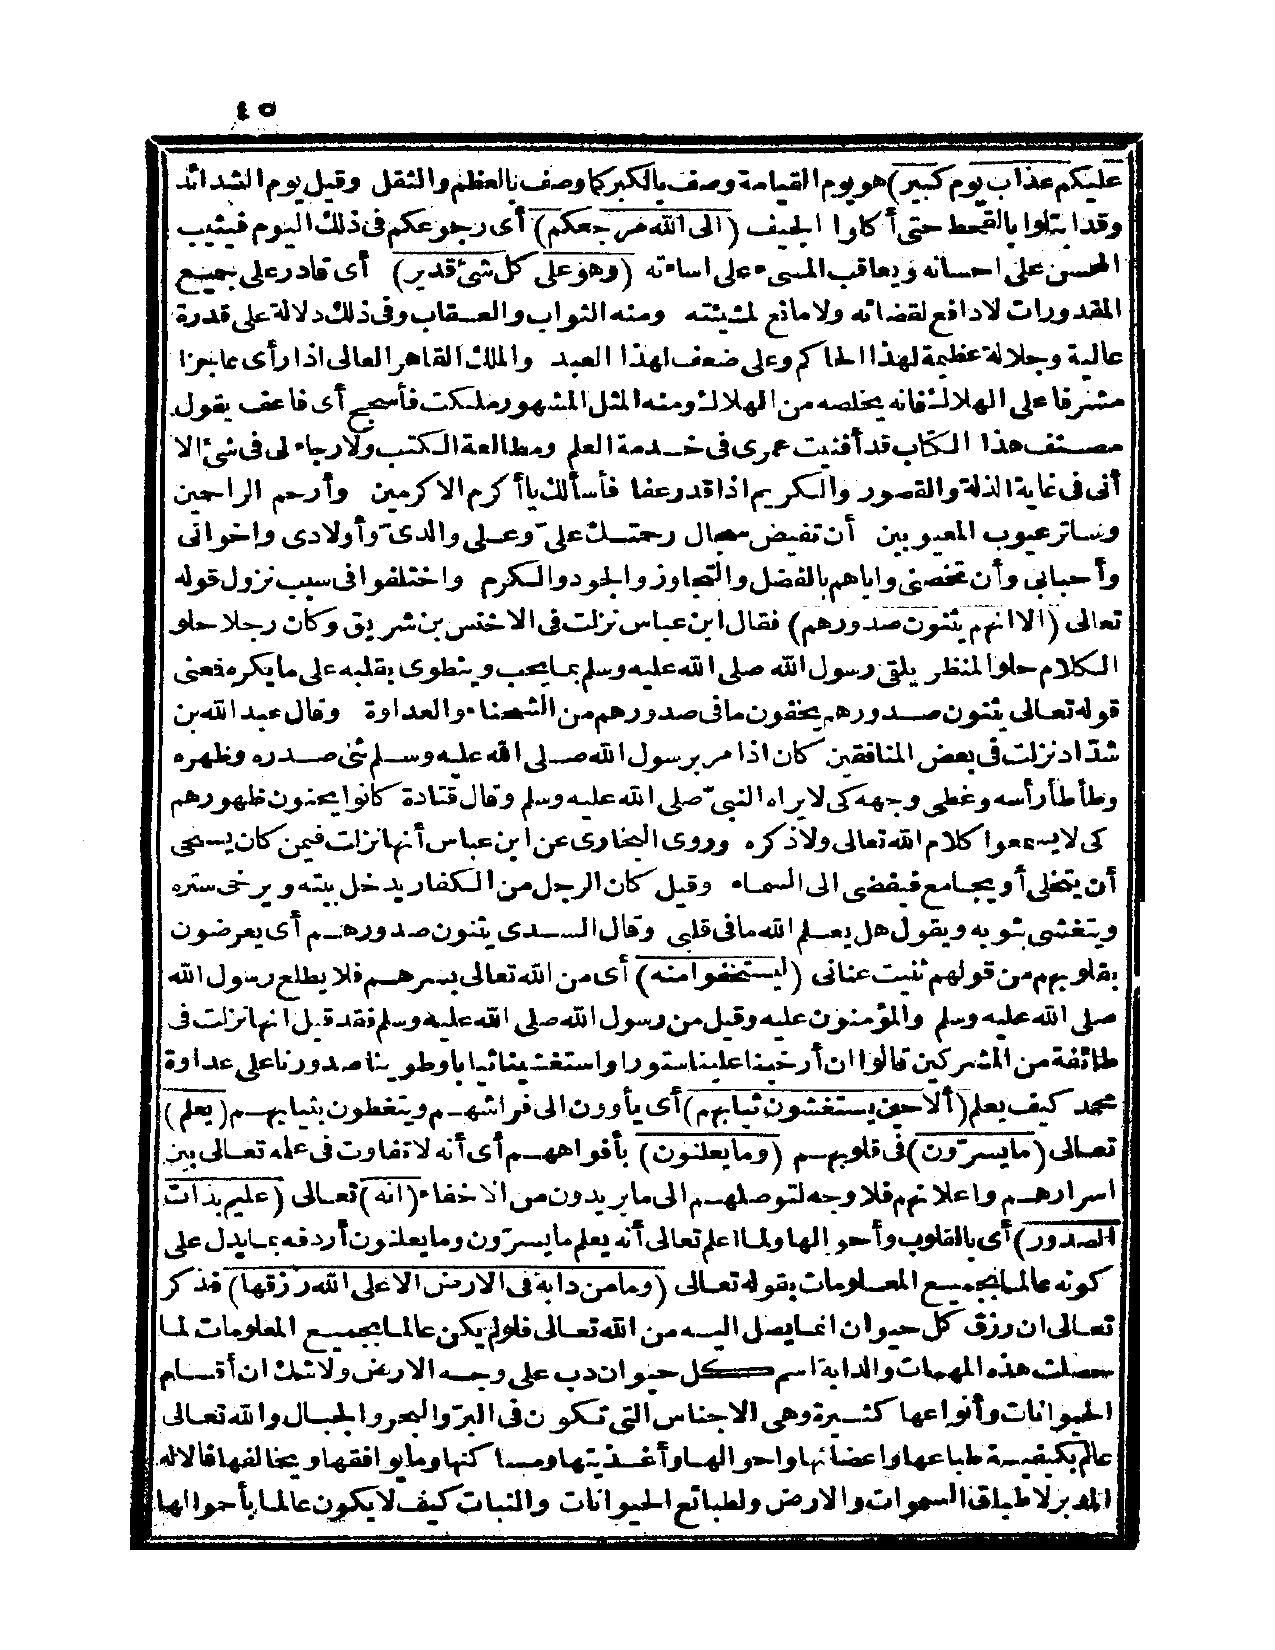 ٤٥
عليكم عذاب يوم كبير) هو يوم القيامة وصف بالكبر كما وصف بالعظم والثقل وقيل يوم الشدائد
وقد ابتلوا بالقحط حتى أكلوا الجيف (الى الله مرجعكم) أى رجوعكم فى ذلك اليوم فيثيب
المحسن على احسانه ويعاقب المسىء على اساءته (وهو على كل شئ قدير) أى قادر على جميع
المقدورات لا دافع لقضائه ولا مانع لمشيئته ومنه الثواب والعقاب وفى ذلك دلالة على قدرة
عالية وجلالة عظيمة لهذا الحاكم وعلى ضعف لهذا العبد والملك القاهر العالى اذا رأى عاجزا
مشرفا على الهلاك فانه يخلصه من الهلاك ومنه المثل المشهور ملكت فأسجح أى فاعف يقول
مصنف هذا الكتاب قد أفنيت عمرى فى خدمة العلم ومطالعة الكتب ولا رجاء لى فى شئ الا
أنى فى غاية الذلة والقصور والكريم اذا قدر عفا فأسألك يا أكرم الاكرمين وأرحم الراحمين
وساتر عيوب المعيوبين أن تفيض سجال رحمتك علىّ وعلى والدىّ وأولادى واخوانى
وأحبابى وأن تخصنى واياهم بالفضل والتجاوز والجود والكرم واختلفوا فى سبب نزول قوله
تعالى (الا انهم يثنون صدورهم) فقال ابن عباس نزلت فى الاخنس بن شريق وكان رجلا حلو
الكلام حلو المنظر يلقى رسول الله صلى الله عليه وسلم بما يحب وينطوى بقلبه على ما يكره فمعنى
قوله تعالى يثنون صدورهم يخفون ما فى صدورهم من الشحناء والعداوة وقال عبد الله بن
شدّاد نزلت فى بعض المنافقين كان اذا مر برسول الله صلى الله عليه وسلم ثنى صدره وظهره
وطأطأ رأسه وغطى وجهه كى لا يراه النبىّ صلى الله عليه وسلم وقال قتادة كانوا يحنون ظهورهم
كى لا يسمعوا كلام الله تعالى ولا ذكره وروى البخارى عن ابن عباس أنها نزلت فيمن كان يستحى
أن يتخلى أو يجامع فيفضى الى السماء وقيل كان الرجل من الكفار يدخل بيته ويرخى ستره
ويتغشى بثوبه ويقول هل يعلم الله ما فى قلبى وقال السدى يثنون صدورهم أى يعرضون
بقلوبهم من قولهم ثنيت عنانى (ليستخفوا منه) أى من الله تعالى بسرهم فلا يطلع رسول الله
صلى الله عليه وسلم والمؤمنون عليه وقيل من رسول الله صلى الله عليه وسلم فقد قيل انها نزلت فى
طائفة من المشركين قالوا ان أرخينا علينا ستورا واستغشينا ثيابا وطوينا صدورنا على عداوة
محمد كيف يعلم (ألا حين يستغشون ثيابهم) أى يأوون الى فراشهم ويتغطون بثيابهم (يعلم)
تعالى (ما يسرّون) فى قلوبهم (وما يعلنون) بأفواههم أى أنه لا تفاوت فى علمه تعالى بين
اسرارهم واعلانهم فلا وجه لتوصلهم الى ما يريدون من الاخفاء (انه) تعالى (عليم بذات
الصدور) أى بالقلوب وأحوالها ولما اعلم تعالى أنه يعلم ما يسرّون وما يعلنون أردفه بما يدل على
كونه عالما بجميع المعلومات بقوله تعالى (وما من دابة فى الارض الا على الله رزقها) فذكر
تعالى ان رزق كل حيوان انما يصل اليه من الله تعالى فلو لم يكن عالما بجميع المعلومات لما
حصلت هذه المهمات والدابة اسم كل حيوان دب على وجه الارض ولا شك ان أقسام
الحيوانات وأنواعها كثيرة وهى الاجناس التى تكون فى البرّ والبحر والجبال والله تعالى
عالم بكيفية طباعها واعضائها واحوالها وأغذيتها ومساكنها وما يوافقها ويخالفها فالاله
المدبر لاطباق السموات والارض ولطبائع الحيوانات والنبات كيف لا يكون عالما بأحوالها